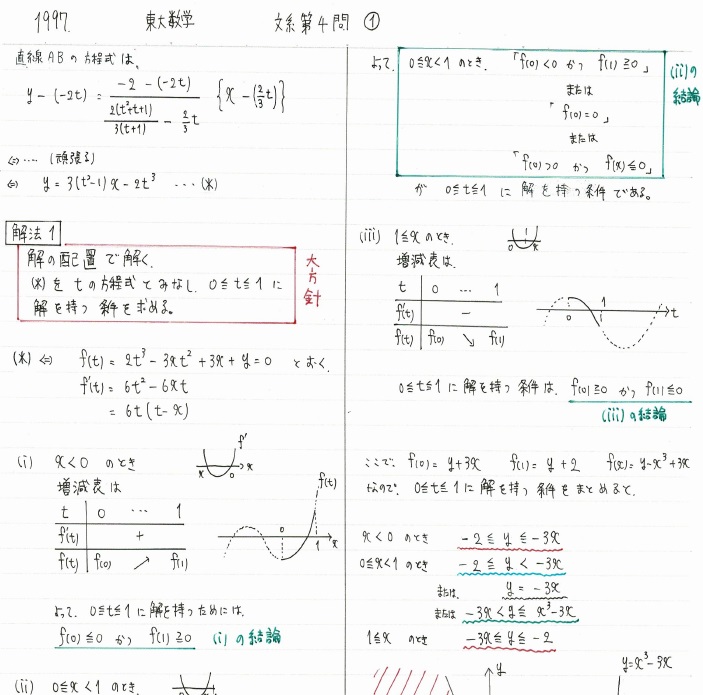 1997. 東大数学 文系第4問 ①
直線ABの方程式は、
y-(-2t) = \frac{-2-(-2t)}{\frac{2(t²+t+1)}{3(t+1)} - \frac{2}{3}t} {x-(\frac{2}{3}t)}
⇔ ‥‥ (頑張る)
⇔ y = 3(t²-1)x - 2t³ … (※)
解法1
解の配置で解く。
(※)をtの方程式とみなし、0≦t≦1に
解を持つ条件を求める。
大方針
(※) ⇔ f(t) = 2t³-3xt²+3x+y=0 とおく.
f'(t) = 6t²-6xt
= 6t(t-x)
(i) x<0 のとき
f'
x 0 x
増減表は
f(t)
t 0 … 1
f'(t) +
f(t) f(0) ↗ f(1)
0 1 x
よって、0≦t≦1に解を持つためには、
f(0)≦0 かつ f(1)≧0 (i)の結論
(ii) 0≦x<1 のとき、
よって、0≦x<1 のとき、 「f(0)<0 かつ f(1)≧0」
または
「f(0)=0」
または
「f(0)>0 かつ f(x)≦0」
(ii)の結論
が 0≦t≦1 に 解を持つ条件である。
(iii) 1≦x のとき、
0 x
増減表は、
t 0 … 1
f'(t) -
f(t) f(0) ↘ f(1)
0 1 t
0≦t≦1に解を持つ条件は、f(0)≧0 かつ f(1)≦0
(iii)の結論
ここで、f(0)=y+3x f(1)=y+2 f(x)=y-x³+3x
なので、0≦t≦1に解を持つ条件をまとめると、
x<0 のとき -2≦y≦-3x
0≦x<1 のとき -2≦y<-3x
または、 y=-3x
または -3x<y≦x³-3x
1≦x のとき -3x≦y≦-2
y
y=x³-3x